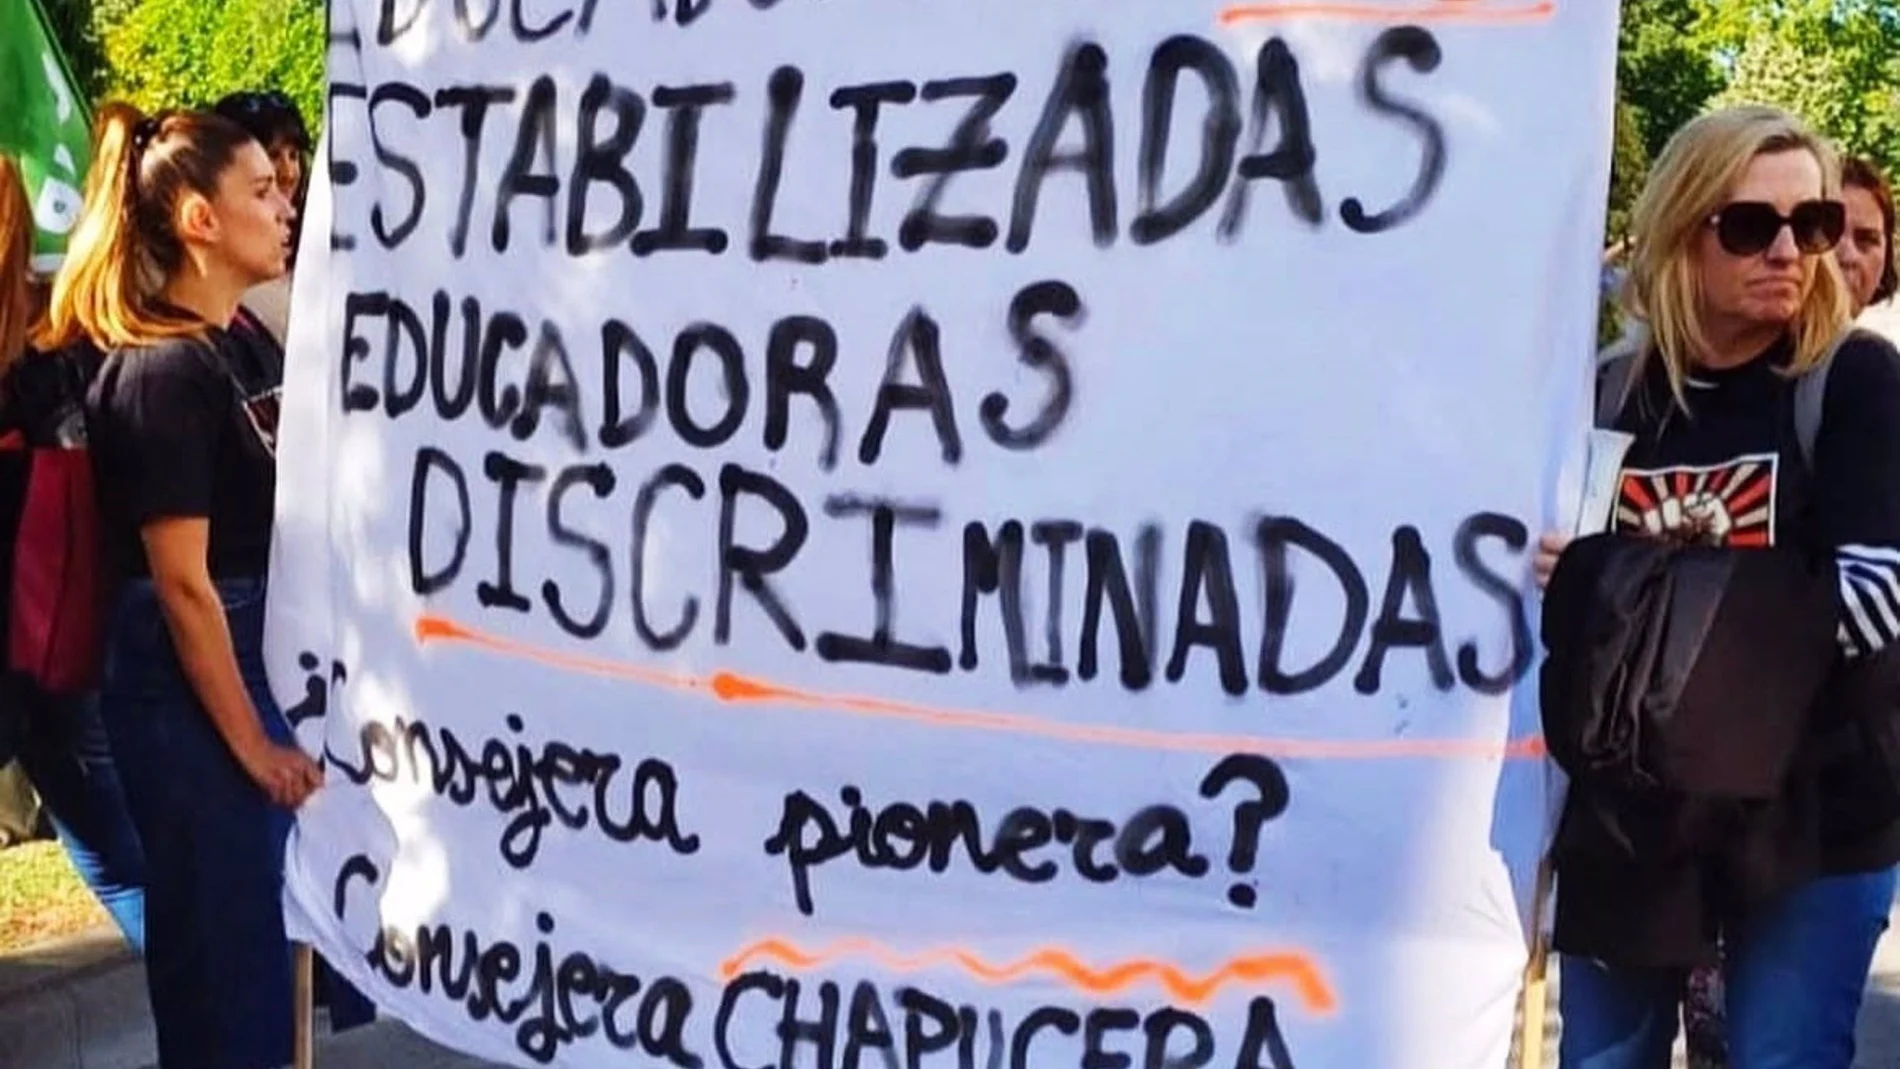 ESTABILIZADAS
EDUCADORAS
DISCRIMINADAS
¿Consejera pionera?
Consejera CHAPUCERA